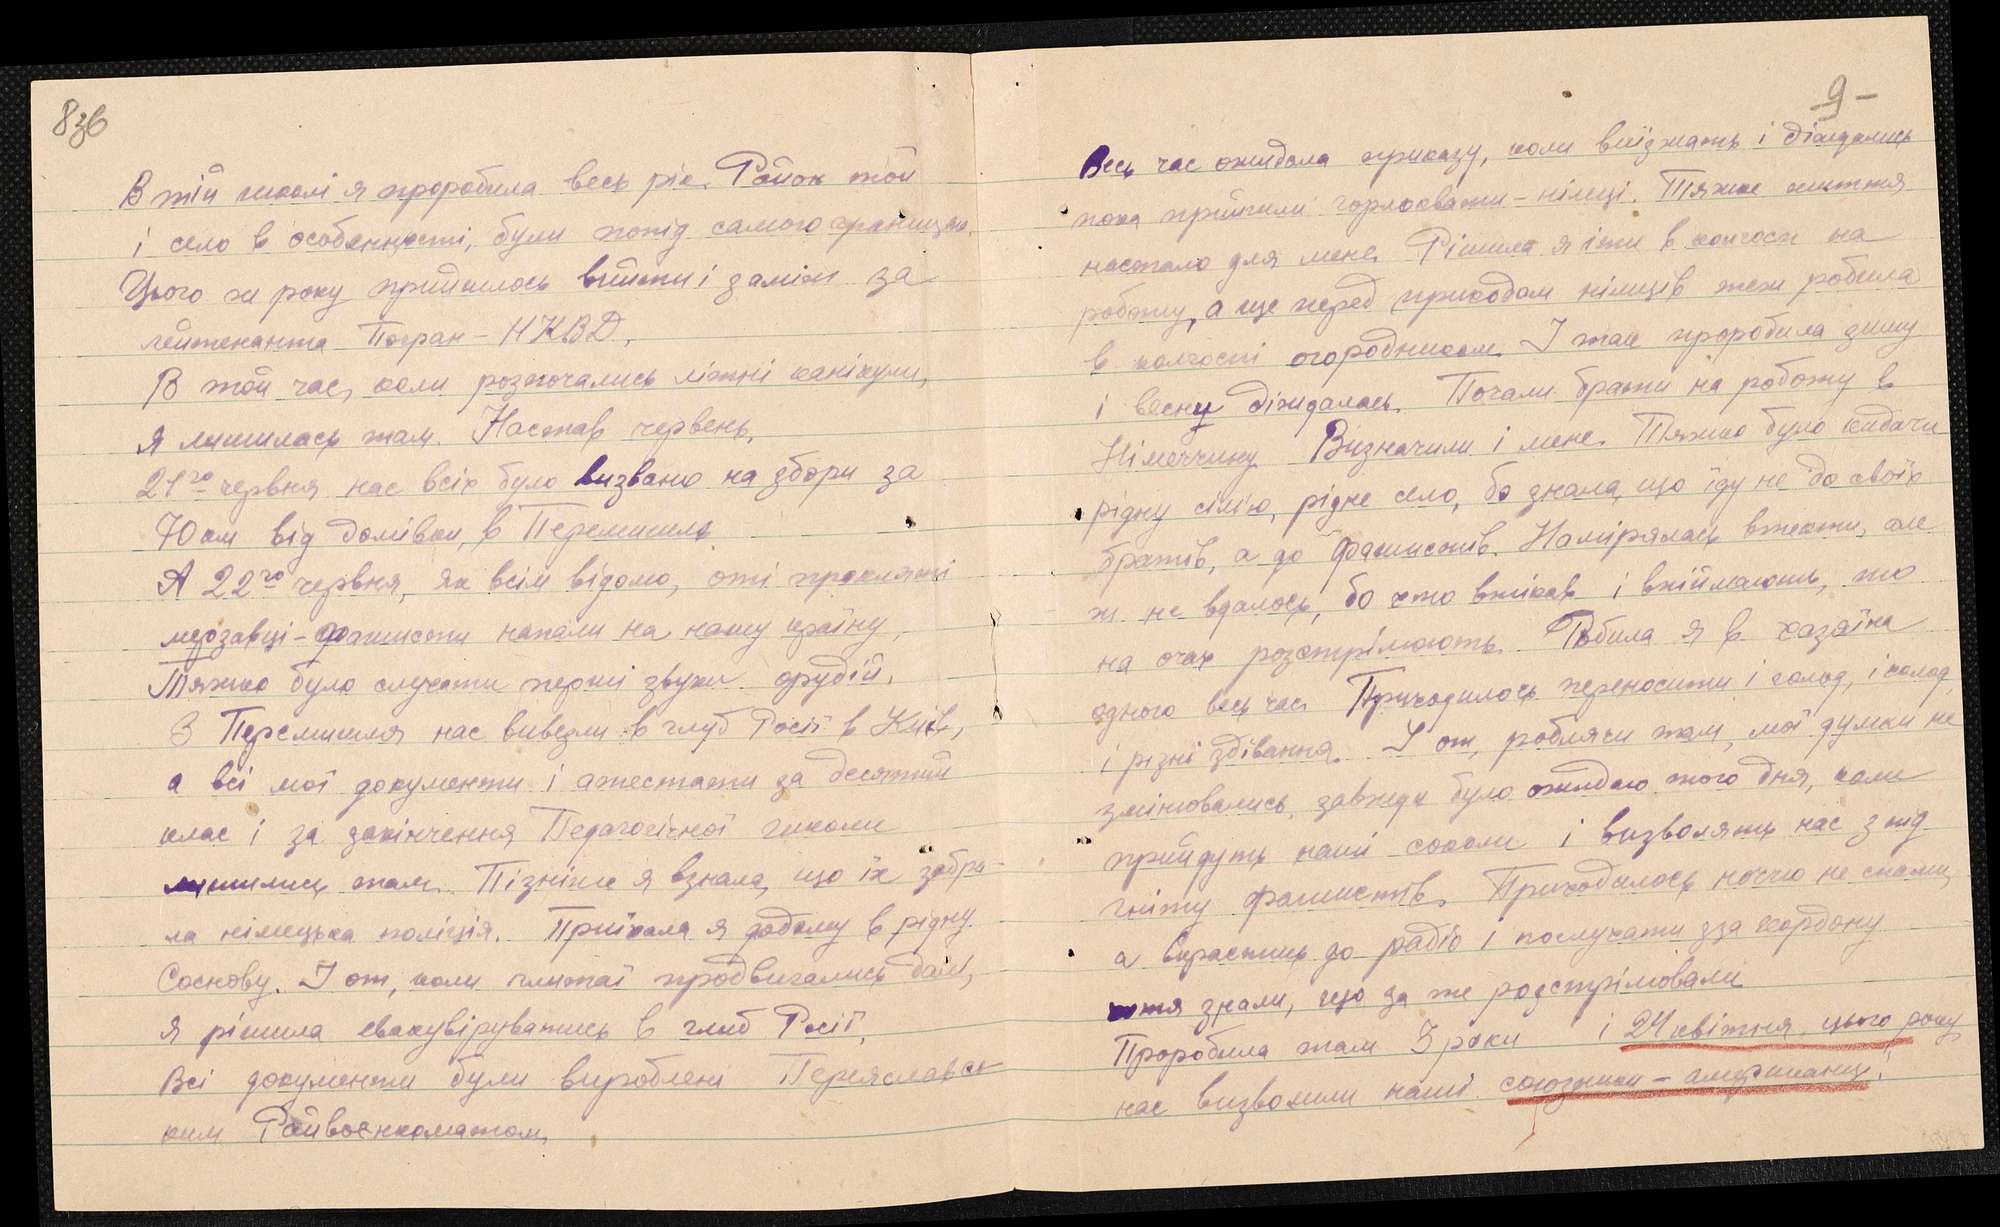 8зв
В тій школі я проробила весь рік. Район той
і село в особенності, були попід самою границею.
Цього ж року прийшлось вийти і заміж за
лейтенанта Погран-НКВД.
В той час, коли розпочались літні канікули,
я лишилась там. Настав червень.
21го червня нас всіх було визвано на збори за
70 км від домівки, в Перемишль
А 22го червня, як всім відомо, оті прокляті
мерзавці-фашисти напали на нашу країну.
Тяжко було слухати перші звуки орудій.
З Перемишля нас вивезли в глуб Росії в Київ,
а всі мої документи і атестати за десятий
клас і за закінчення Педагогічної школи
лишились там. Пізніше я взнала, що їх забра-
ла німецька поліція. Приїхала я додому в рідну
Соснову. І от, коли плитаї продвигались далі,
я рішила евакувіруватись в глиб Росії.
Всі документи були вироблені Переяславсь
ким Райвоєнкоматом.
9-
Весь час ожидала приказу, коли виїзжать і діждались
поки прийшли горлохвати-німці. Тяжке життя
настало для мене. Рішила я іти в колгосп на
роботу, а ще перед приходом німців теж робила
в колгоспі огородником. І так проробила зиму
і весну діждалась. Почали брати на роботу в
Німеччину. Визначили і мене. Тяжко було кидати
рідну сім'ю, рідне село, бо знала, що їду не до своїх
братів, а до фашистів. Намірялась втекти, але
ж не вдалось, бо хто втікав і впіймають, то
на очах розстрілюють. Робила я в хазяїна
одного весь час. Приходилось переносити і голод, і холод,
і різні здівання. І от, роблячи там, мої думки не
змінювались, завжди було ожидаю того дня, коли
прийдуть наші соколи і визволять нас з під
гніту фашистів. Приходилось ноччю не спати,
а вкрастись до радіо і послухати зза кордону
хотя знали, що за те розстрілювали
Проробила там 3 роки і 24 квітня цього року
нас визволили наші союзники-американці.